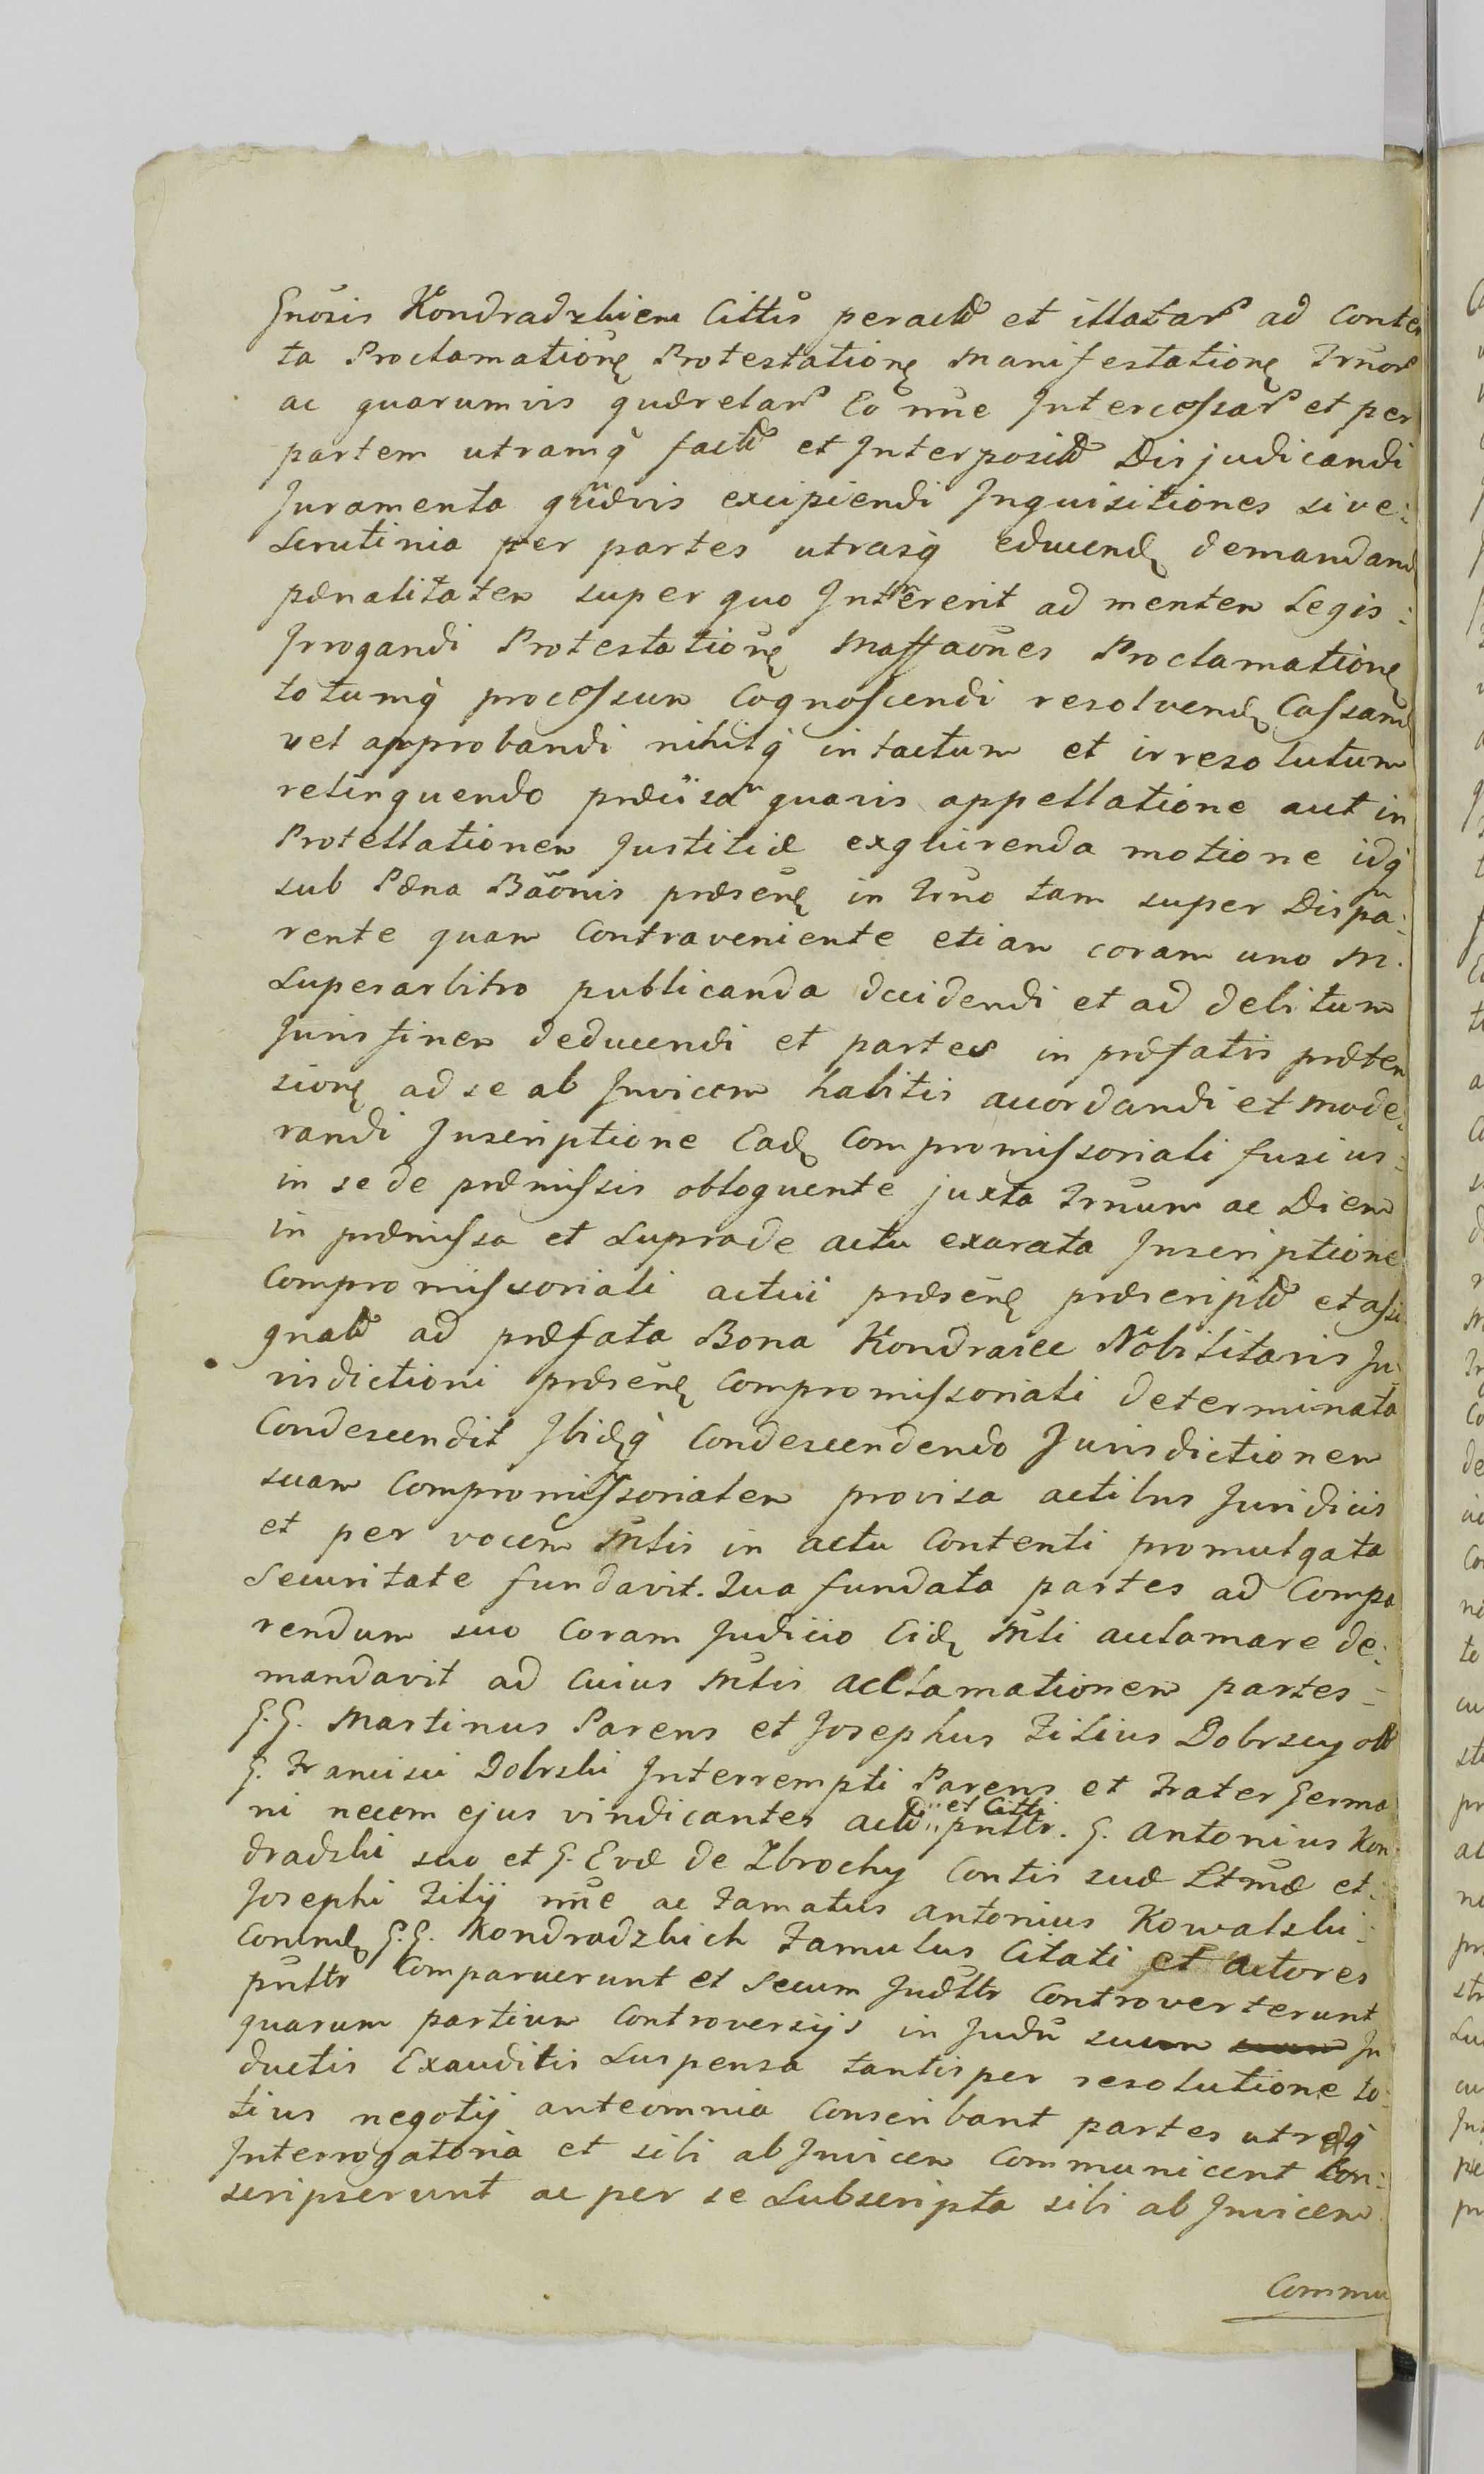 Gnōsis Kondradzkiem Cittis peractt et illatar ad Conten
ta Proclamationē Protestationē Manifestationē Trnor
ac quarumvis quærelar Eo nne Intercessar et per
partem utramq̀ factt et Interposit Disjudicandi
Juramenta quævis excipiendi Inquisitiones sive:
Scrutinia per partes utrasq̀ educend demandand
pænalitatem super quo Intererit ad mentem Legis:
Irrogandi Protestationē Maffaōnes Proclamatione
totumq̀ processum Cognoscendi resolvend Cassand
vel approbandi nihilq̀ intactum et irresolutum
relinquendo præcisa quavis appellatione aut in
Protellationem Justitiæ exquirenda motione idq̀
sub Pæna Bāōnis præsenē in Trno tam super Dispa:
rente quam Contraveniente etiam coram uno M.
Superarbitro publicanda decidendi et ad debitum
Juris finem deducendi et partes in præfatis præten
sionē ad se ab Invicem habitis accordandi et mode:
randi Inscriptione Ead Compromissoriali fusius:
in se de præmissis obloquente juxta Trnum ac Diem
in præmissa et Suprade actu exarata Inscriptione
Compromissoriali actui præsenē præscriptt et assi
gnatt ad præfata Bona Kondraice Nobilitaris Ju
risdictioni præsenē Compromissoriali determinata
Condescendit Ibidq̀ Condescendendo Jurisdictionem
suam Compromissorialem provisa actibus Juridicis
et per vocem Mlis in actu Contenti promulgata
Securitate fundavit. Qua fundata partes ad Compa
rendum suo Coram Judicio Eid Mli acclamare de:
mandavit ad Cuius Mlis acclamationem partes
G.G. Martinus Parens et Josephus Filius Dobrscy olt
G. Francisci Dobrski Interrempti Parens et Frater Germa
ni necem ejus vindicantes actt et Citti pnttr. G. Antonius Kon
dradzki suo et G. Evæ de Zbrochy Contis suæ Ltmæ et:
Josephi Filij nne ac Famatus Antonius Kowalski:
Commd G.G. Kondradzkich Famulus Citati et Actores
pnttr Comparuerunt et Secum Judttr Controverterunt
quarum partium Controversijs in Judū suum suum In
ductis Exauditis Suspensa tantisper resolutione to:
tius negotij anteomnia Conscribant partes utræq̀
Interrogatoria et sibi ab Invicem Communicent Con:
scripserunt ac per se Subscripta sibi ab Invicem
Commu